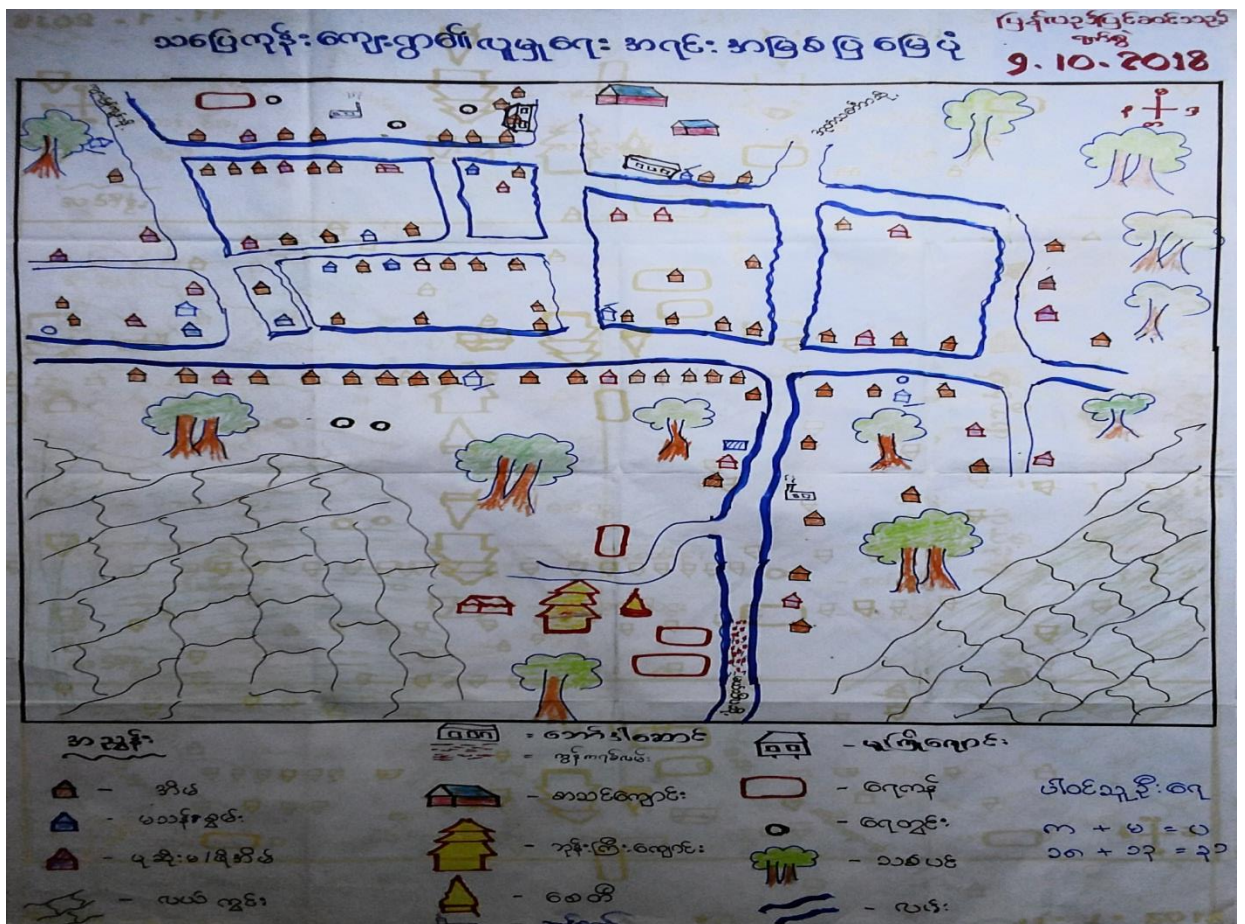 သပြေကုန်းကျေးရွာ၏လူမှုရေး အရင်းအမြစ်ပြ မြေပုံ
ပြန်လည်ပြင်ဆင်သည့်
ရက်စွဲ
9.10.2018
အညွှန်း
- အိမ်
- မသန်စွမ်း
- လယ်ကွင်း
= ဘော်ဒါဆောင်
= ကွန်ကရစ်လမ်း
- စာသင်ကျောင်း
- ဘုန်းကြီးကျောင်း
- စေတီ
- မူကြိုကျောင်း
- ရေကန်
- ရေတွင်း
- သစ်ပင်
- လမ်း
ပါဝင်သူဦးရေ
ကျ + မ = ပ
၁၈ + ၁၃ = ၃၁